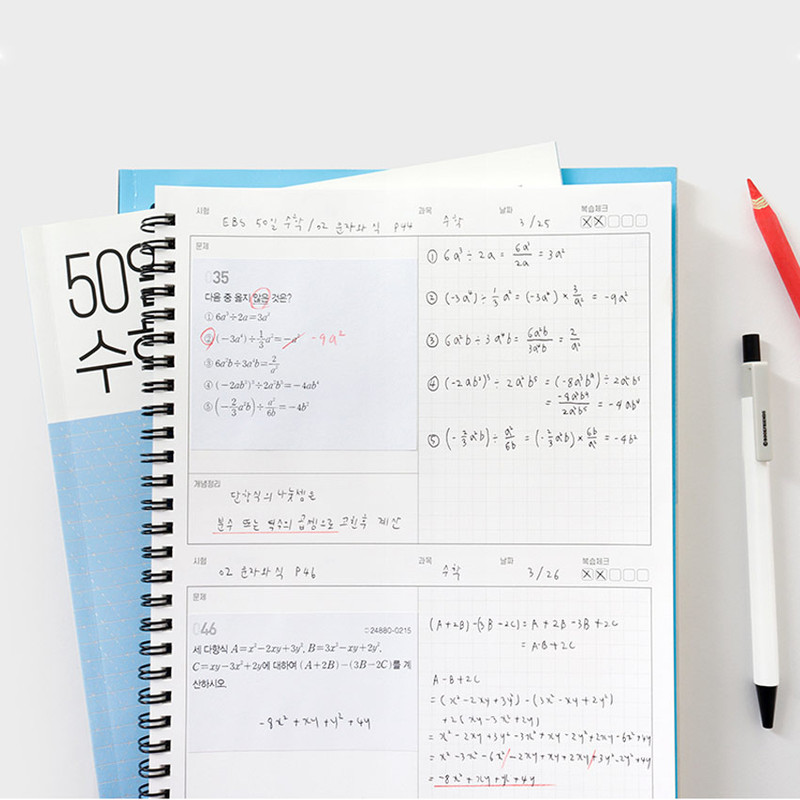 50일
수학
시험 과목 날짜 복습체크
EBS 50일 수학 / 02 문자와 식 P44 수학 3/25
문제
035
다음 중 옳지 않은 것은?
① 6a³÷2a=3a²
② (−3a⁴)÷1/3a²=−a² -9a²
③ 6a²b÷3a⁴b=2/a²
④ (−2ab²)³÷2a²b⁵=−4ab⁴
⑤ (−2/3a²b)÷a²/6b=−4b²
① 6a³ ÷ 2a = 6a³/2a = 3a²
② (-3a⁴) ÷ 1/3 a² = (-3a⁴) × 3/a² = -9a²
③ 6a²b ÷ 3a⁴b = 6a²b/3a⁴b = 2/a²
④ (-2ab²)³ ÷ 2a²b⁵ = (-8a³b⁶) ÷ 2a²b⁵
= -8a³b⁶/2a²b⁵ = -4ab⁴
⑤ (-2/3a²b) ÷ a²/6b = (-2/3a²b) × 6b/a² = -4b²
개념정리
단항식의 나눗셈은
분수 또는 역수의 곱셈으로 고친 후 계산
시험 과목 날짜 복습체크
02 문자와 식 P46 수학 3/26
문제
046 24880-0215
세 다항식 A=x²−2xy+3y², B=3x²−xy+2y²,
C=xy−3x²+2y에 대하여 (A+2B)−(3B−2C)를 계
산하시오.
-8x² + xy + y² + 4y
(A+2B)-(3B-2C) = A+2B-3B+2C
= A-B+2C
A-B+2C
= (x²-2xy+3y²) - (3x²-xy+2y²)
+2(xy-3x²+2y)
= x²-2xy+3y²-3x²+xy-2y²+2xy-6x²+4y
= x²-3x²-6x²-2xy+xy+2xy+3y²-2y²+4y
= -8x²+xy+y²+4y